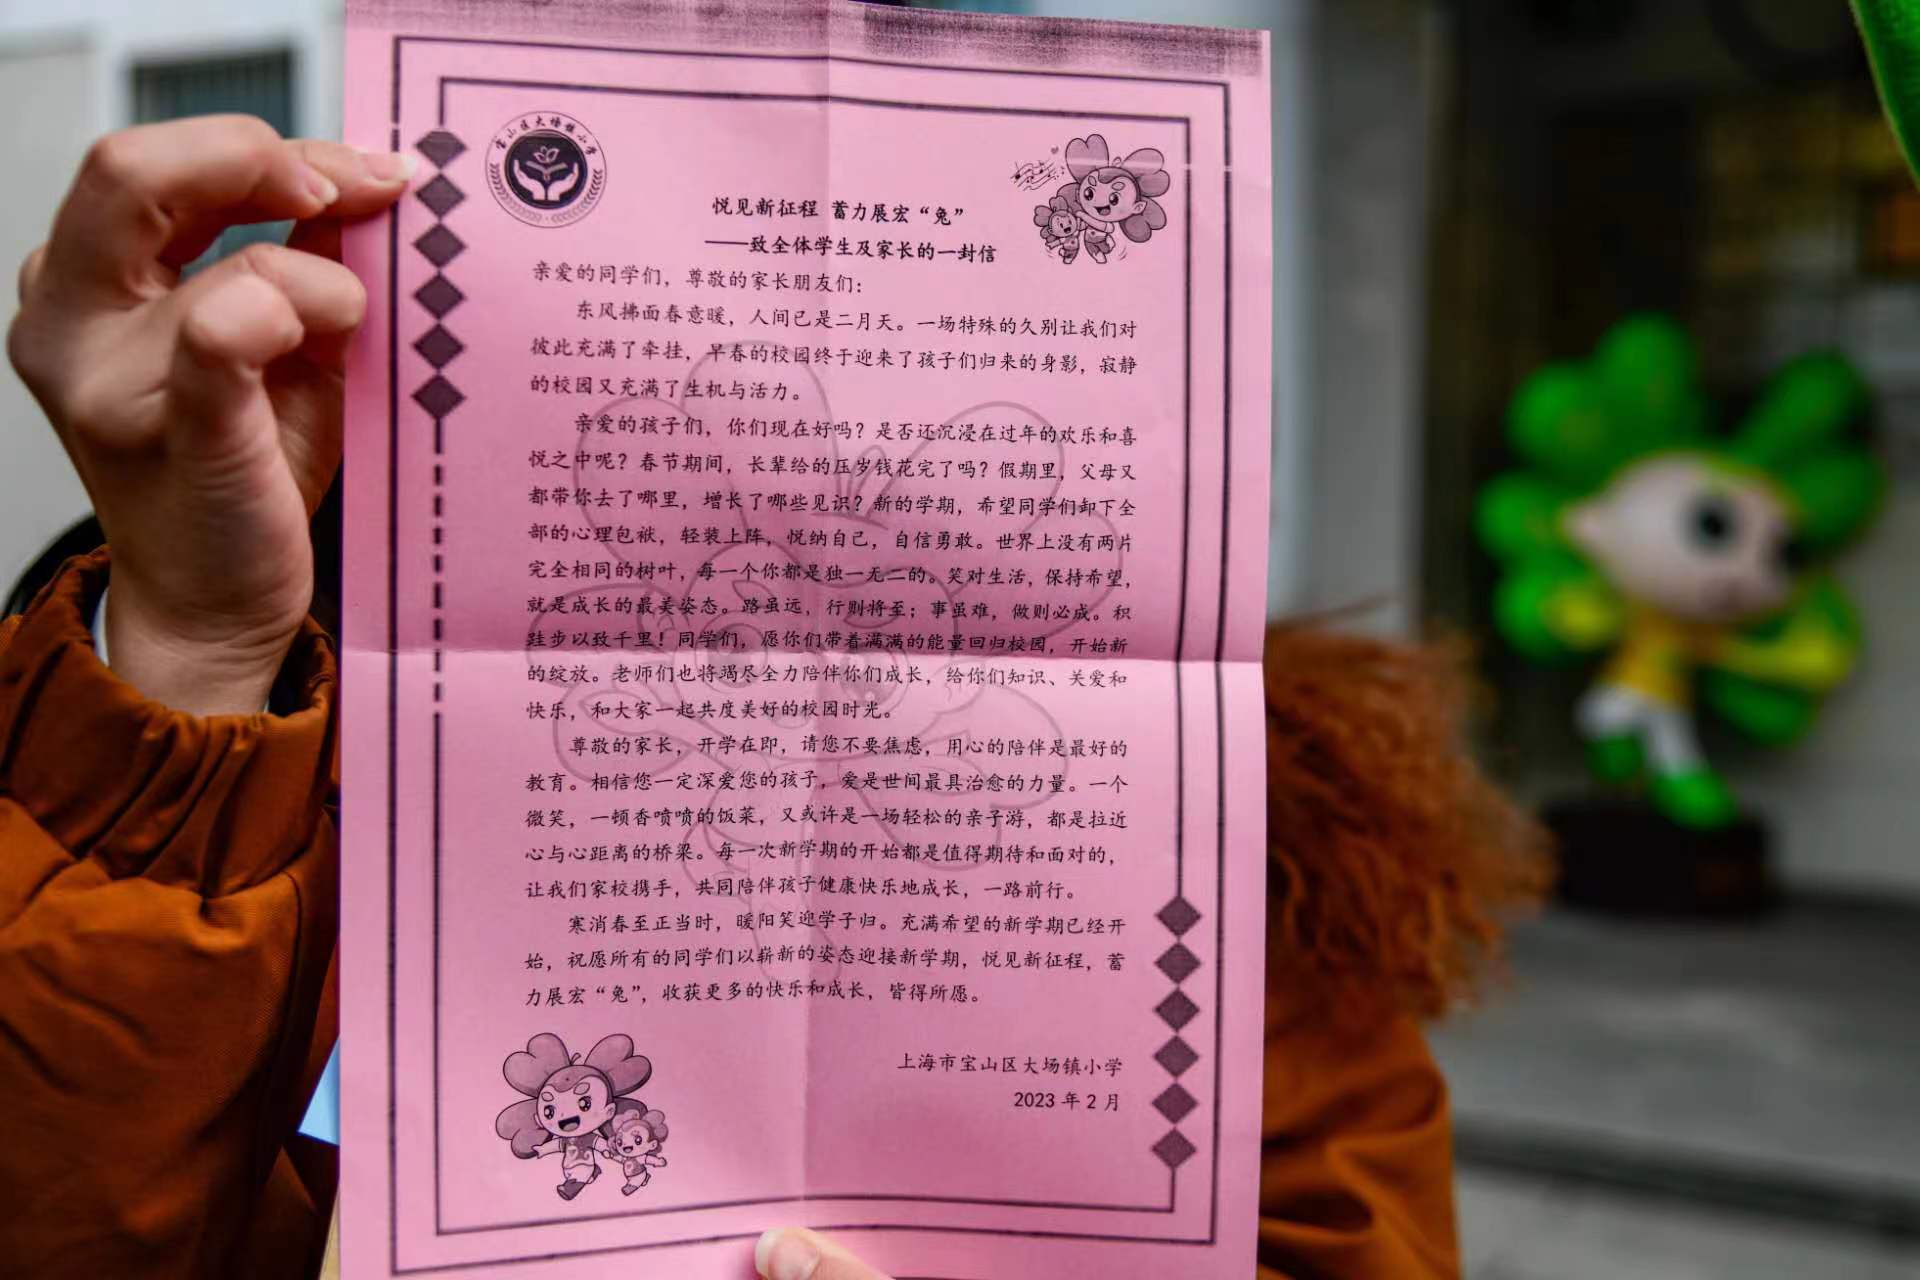 宝山区大场镇小学
悦见新征程 蓄力展宏“兔”
——致全体学生及家长的一封信
亲爱的同学们，尊敬的家长朋友们：
东风拂面春意暖，人间已是二月天。一场特殊的久别让我们对
彼此充满了牵挂，早春的校园终于迎来了孩子们归来的身影，寂静
的校园又充满了生机与活力。
亲爱的孩子们，你们现在好吗？是否还沉浸在过年的欢乐和喜
悦之中呢？春节期间，长辈给的压岁钱花完了吗？假期里，父母又
都带你去了哪里，增长了哪些见识？新的学期，希望同学们卸下全
部的心理包袱，轻装上阵，悦纳自己，自信勇敢。世界上没有两片
完全相同的树叶，每一个你都是独一无二的。笑对生活，保持希望，
就是成长的最美姿态。路虽远，行则将至；事虽难，做则必成。积
跬步以致千里！同学们，愿你们带着满满的能量回归校园，开始新
的绽放。老师们也将竭尽全力陪伴你们成长，给你们知识、关爱和
快乐，和大家一起共度美好的校园时光。
尊敬的家长，开学在即，请您不要焦虑，用心的陪伴是最好的
教育。相信您一定深爱您的孩子，爱是世间最具治愈的力量。一个
微笑，一顿香喷喷的饭菜，又或许是一场轻松的亲子游，都是拉近
心与心距离的桥梁。每一次新学期的开始都是值得期待和面对的，
让我们家校携手，共同陪伴孩子健康快乐地成长，一路前行。
寒消春至正当时，暖阳笑迎学子归。充满希望的新学期已经开
始，祝愿所有的同学们以崭新的姿态迎接新学期，悦见新征程，蓄
力展宏“兔”，收获更多的快乐和成长，皆得所愿。
上海市宝山区大场镇小学
2023 年 2 月